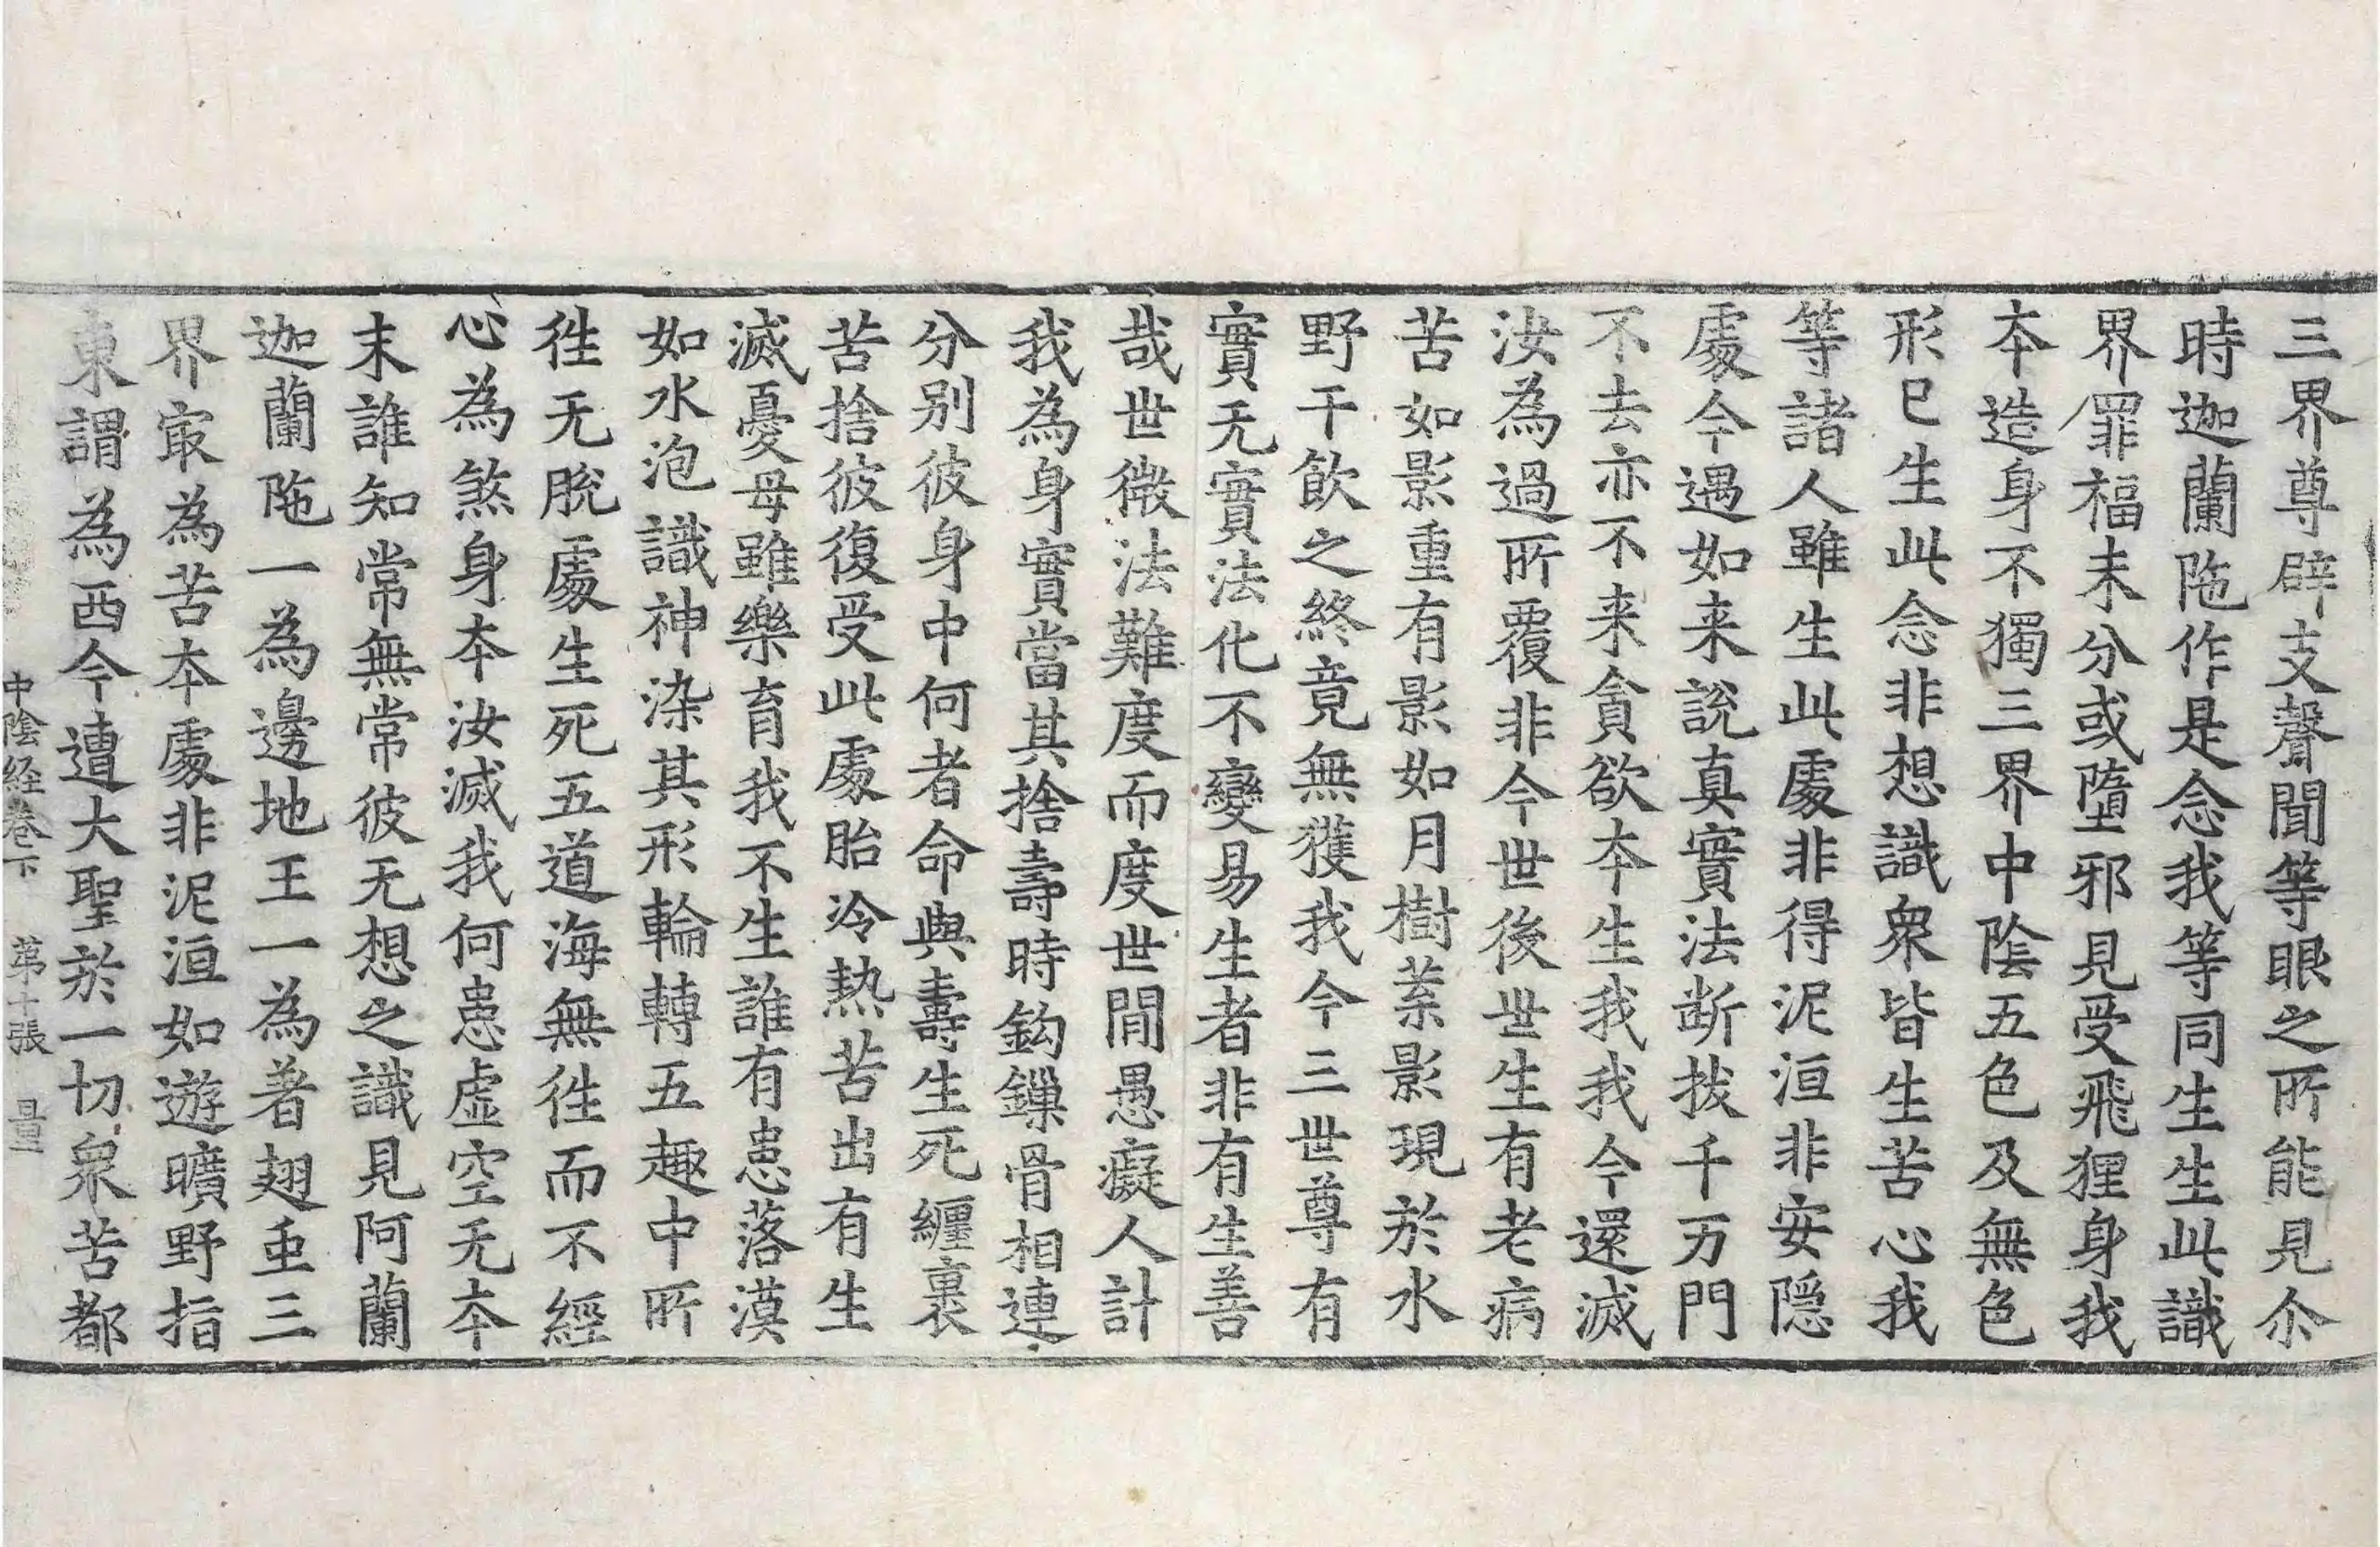 三界尊辟支聲聞等眼之所能見尒
時迦蘭陁作是念我等同生生此識
界罪福未分或墮邪見受飛狸身我
夲造身不獨三界中陰五色及無色
形已生此念非想識衆皆生苦心我
等諸人雖生此處非得泥洹非安隠
處今遇如来說真實法断拔千万門
不去亦不来貪欲夲生我我今還滅
汝為過所覆非今世後世生有老病
苦如影重有影如月樹葉影現於水
野干飲之終竟無獲我今三世尊有
實无實法化不變易生者非有生善
哉世微法難度而度世間愚癡人計
我為身實當其捨壽時鈎鏁骨相連
分別彼身中何者命與壽生死纏裹
苦捨彼復受此處胎冷熱苦出有生
滅憂母雖樂育我不生誰有患落漠
如水泡識神染其形輪轉五趣中所
徃无脫處生死五道海無徃而不經
心為煞身夲汝滅我何患虛空无夲
末誰知常無常彼无想之識見阿蘭
迦蘭陁一為邊地王一為著翅䖝三
界㝡為苦夲處非泥洹如遊曠野指
東謂為西今遭大聖於一切衆苦都
中陰経卷下 苐十張 量